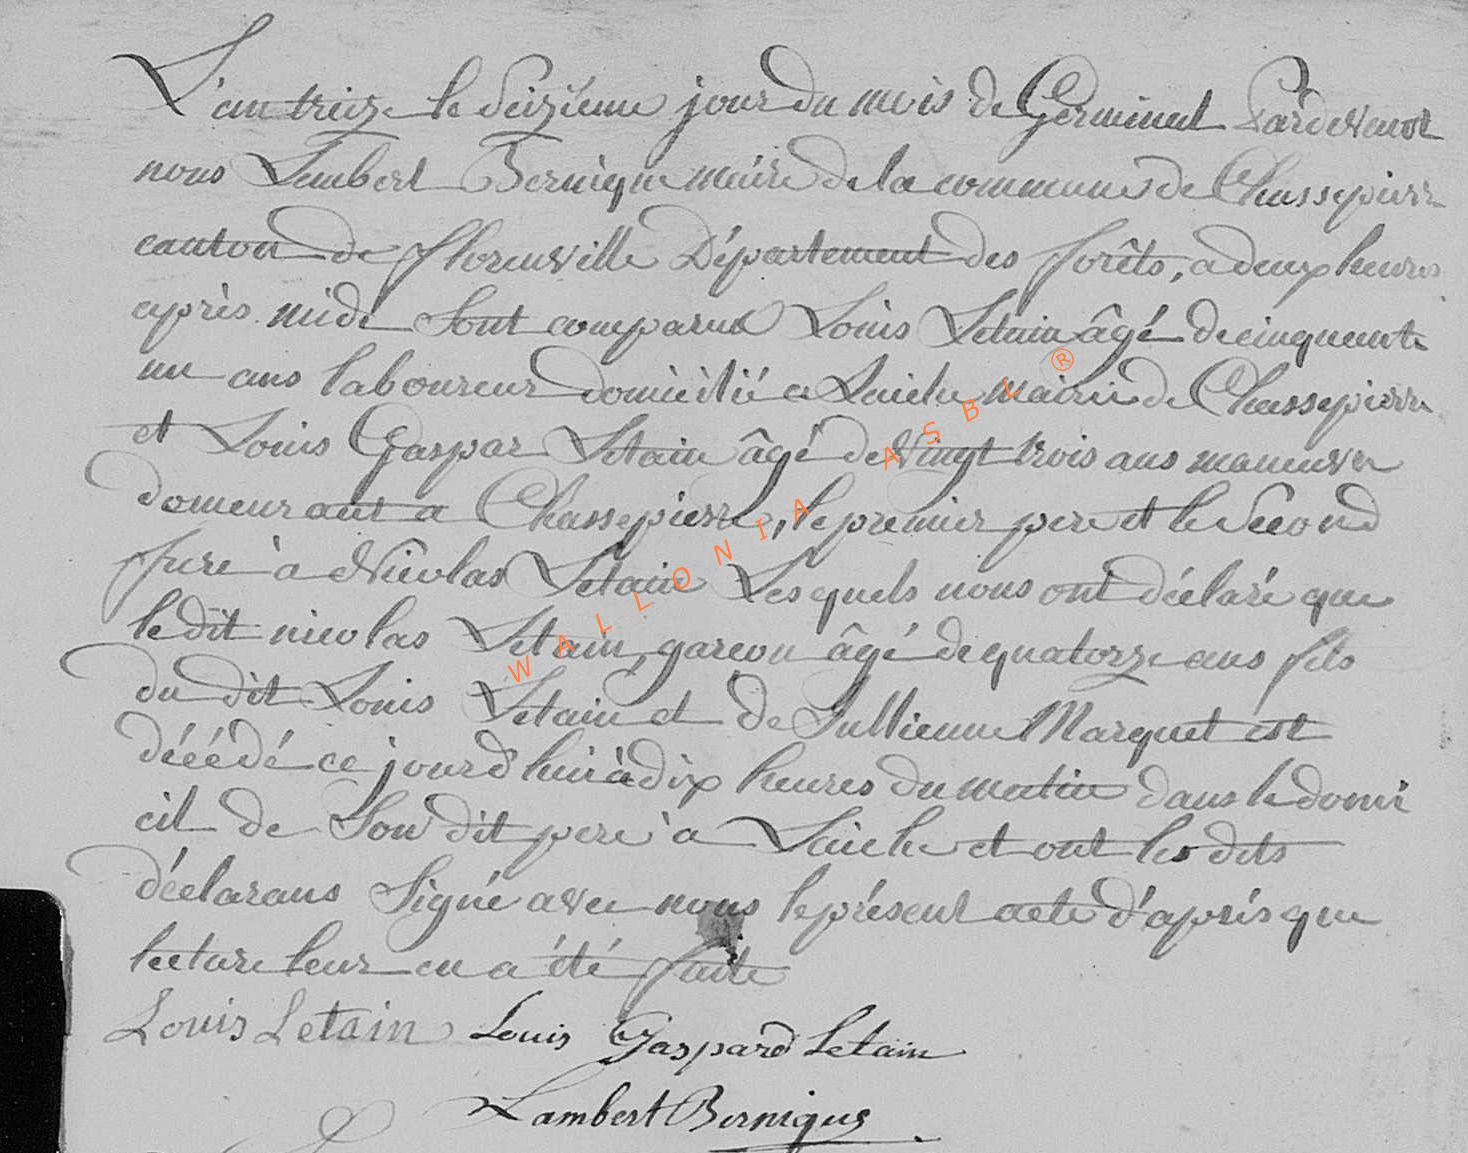 L'an treize le Seizieme jour du mois de Germinal Pardevant
nous Lambert Bernique maire de la commune de Chassepierre
canton de florenville Département des forêts, a deux heures
après midi Sont comparus Louis Letain âgé de cinquente
un ans laboureur domicilié a Laiche mairie de Chassepierre
et Louis Gaspar Letain âgé de vingt trois ans maneuvre
demeurant a Chassepierre, le premier pere et le Second
frere à Nicolas Letain Lesquels nous ont déclaré que
le dit nicolas Letain, garcon âgé de quatorze ans fils
du dit Louis Letain et de Jullienne Marquet est
décédé ce jourd'hui à dix heures du matin dans le domi
cil de Son dit pere à Laiche et ont les dits
déclarans Signé avec nous le présent acte d'après que
lecture leur en a été faite
Louis Letain Louis Gaspard Letain
Lambert Bernique
WALLONIA ASBL ®